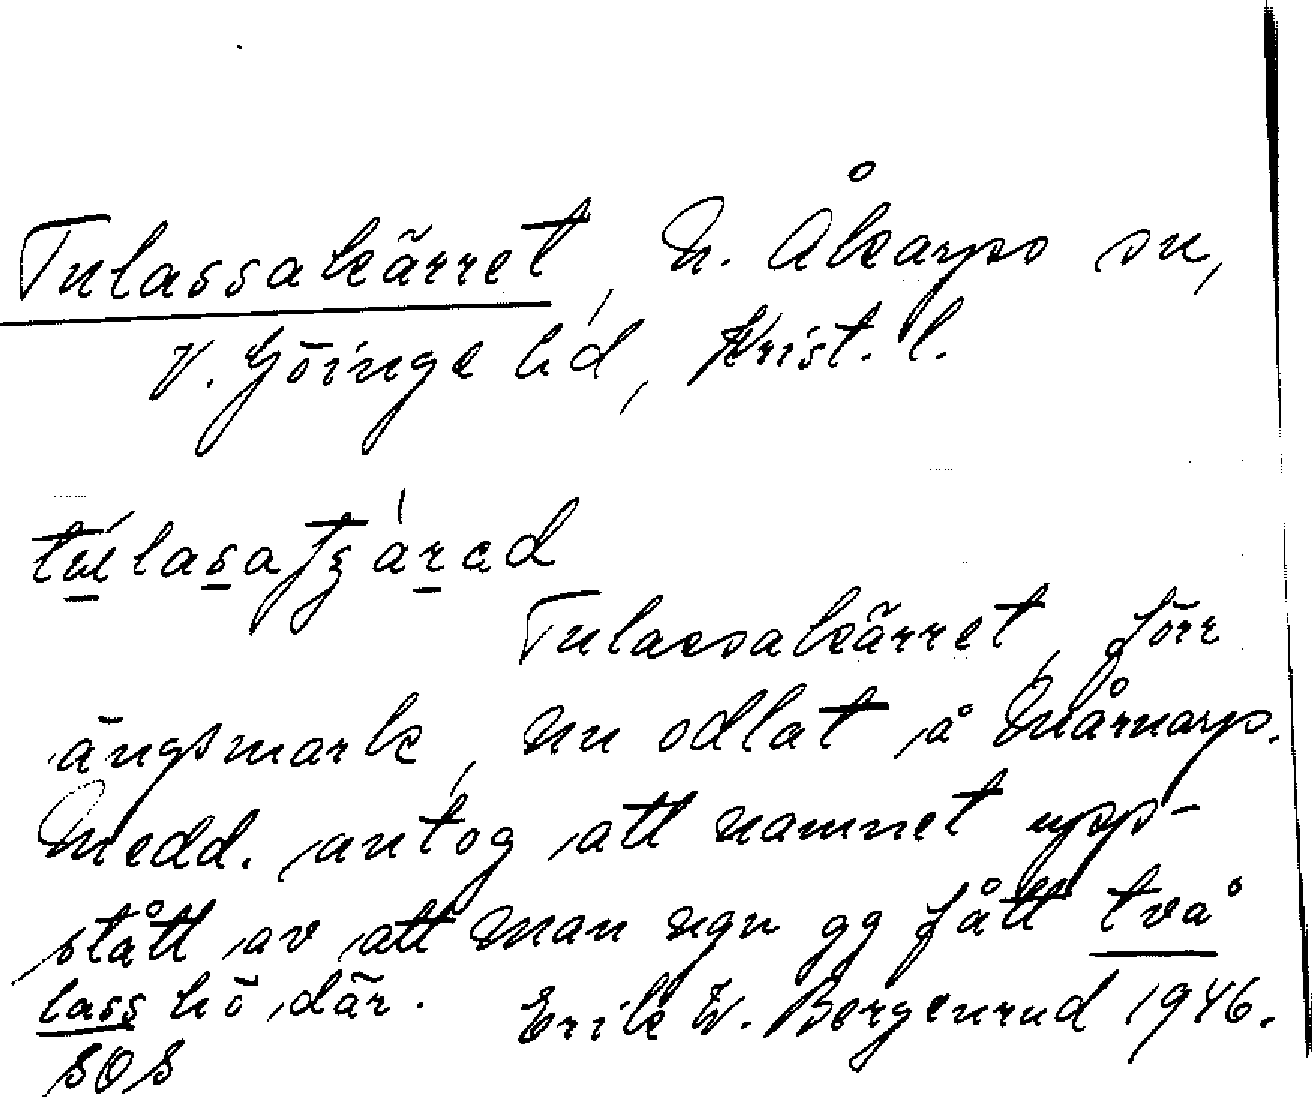 Tulassakärret, N. Åkarps sn,
V. Göinge hd, Krist. l.
Tulassakärret, förr
ängsmark, nu odlat å Mårnarp.
Medd. antog att namnet upp-
stått av att man ngn gg fått två
lass hö där. Erik W. Bergenrud 1946.
SOS